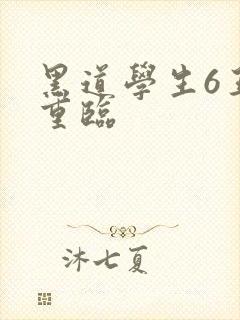 黑道學生6王
重臨
沐七夏